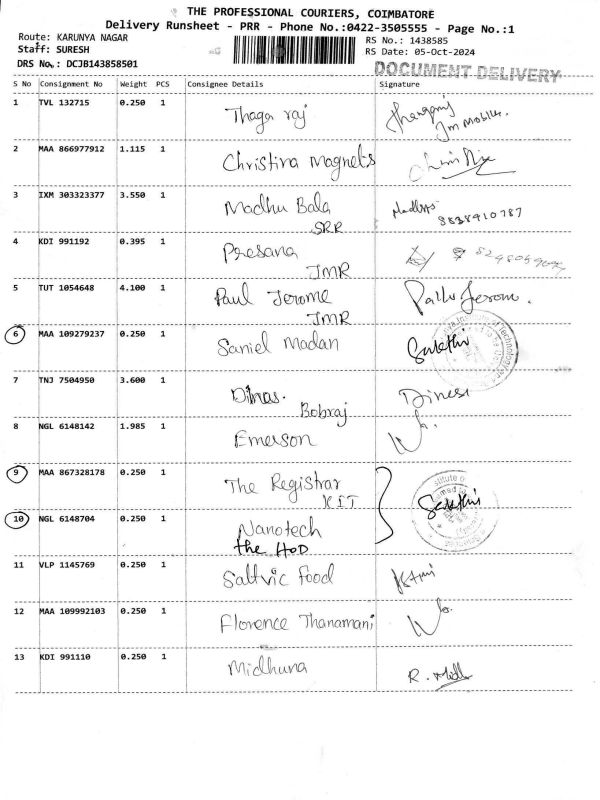 THE PROFESSIONAL COURIERS, COIMBATORE
Delivery Runsheet - PRR - Phone No.:0422-3505555 - Page No.:1
Route: KARUNYA NAGAR
RS No.: 1438585
Staff: SURESH
RS Date: 05-Oct-2024
DRS No.: DCJB143858501
DOCUMENT DELIVERY
S No Consignment No Weight PCS Consignee Details Signature
1 TVL 132715 0.250 1 Thaga raj
Jm Mobiles.
2 MAA 866977912 1.115 1 Christina Magnets
3 IXM 303323377 3.550 1 Madhu Bala
SRR 8838910787
4 KDI 991192 0.395 1 Presana
JMR
5 TUT 1054648 4.100 1 Paul Jerome
JMR
6 MAA 109279237 0.250 1 Saniel Madan Sakthi
7 TNJ 7504950 3.600 1 Dinas. Dinesh
Bobraj
8 NGL 6148142 1.985 1 Emerson
9 MAA 867328178 0.250 1 The Registrar Sakthi
KIT
10 NGL 6148704 0.250 1 Nanotech
the HOD
11 VLP 1145769 0.250 1 Saltvic Food
12 MAA 109992103 0.250 1 Florence Thanamani
13 KDI 991110 0.250 1 Midhuna